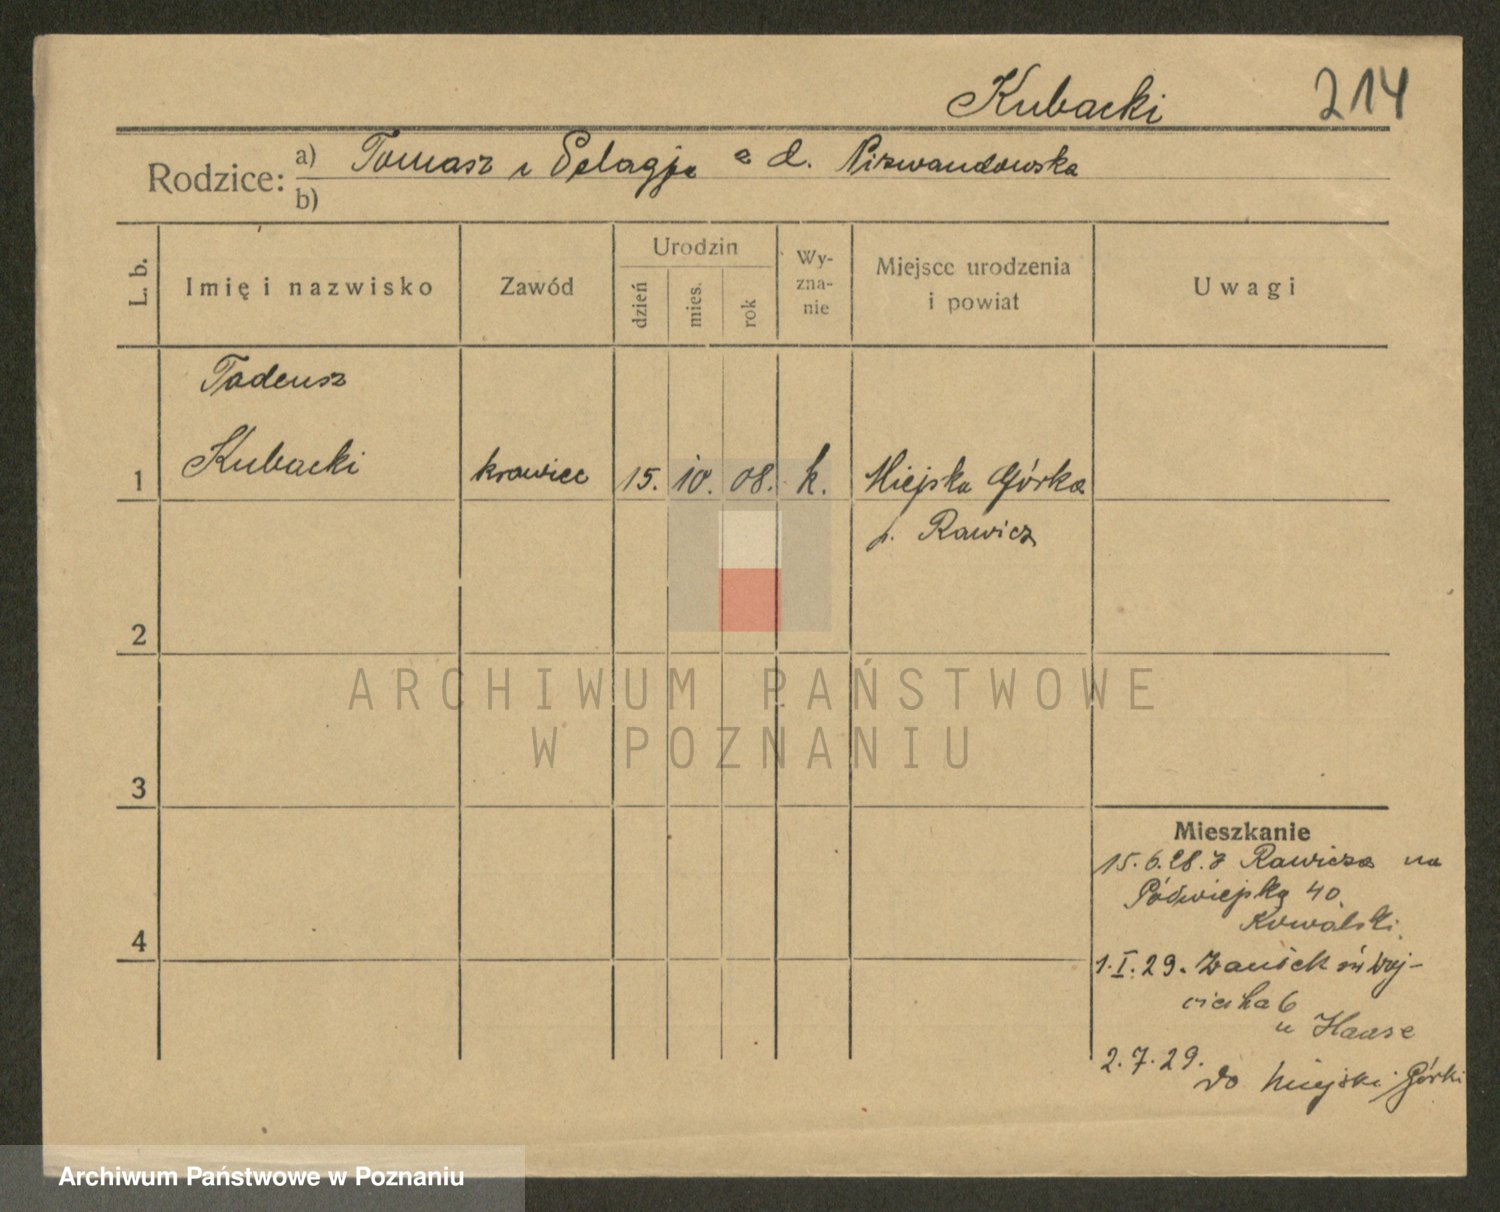 Kubacki 214
Rodzice: a) Tomasz i Pelagja z d.
b)
L. b.
Imię i nazwisko
Zawód
Urodzin
dzień
mies.
rok
Wy-
zna-
nie
Miejsce urodzenia
i powiat
Uwagi
Tadeusz
1 Kubacki krawiec 15. 10. 08. k. Miejska Górka
p. Rawicz
2
3
4
ARCHIWUM PAŃSTWOWE
W POZNANIU
Mieszkanie
15.6.28. z Rawicza na
40.
Kowalski.
1.I.29. św Woj-
ciecha 6
u Haase
2.7.29.
do Miejski Górki
Archiwum Państwowe w Poznaniu